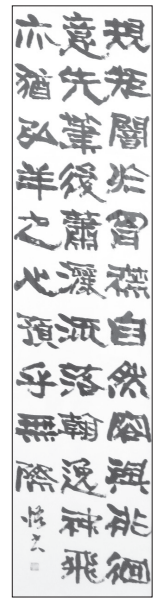 規矩闇於胷襟自然容與徘徊
意先筆後蕭灑流落翰逸神飛
亦猶弘羊之心預乎無際